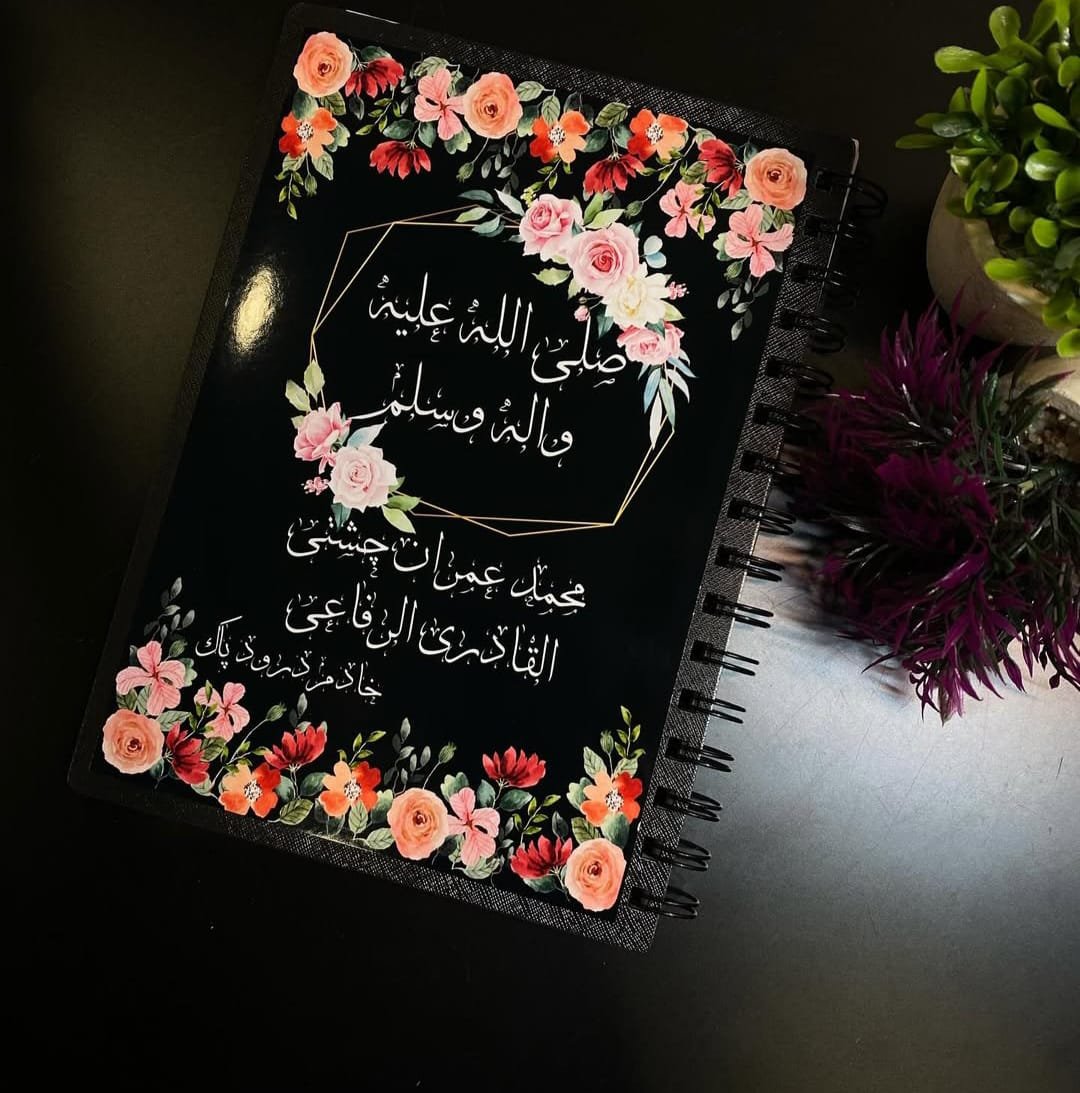 صلى الله عليه
واله وسلم
محمد عمران چشتى
القادرى الرفاعى
خادم درود پاک